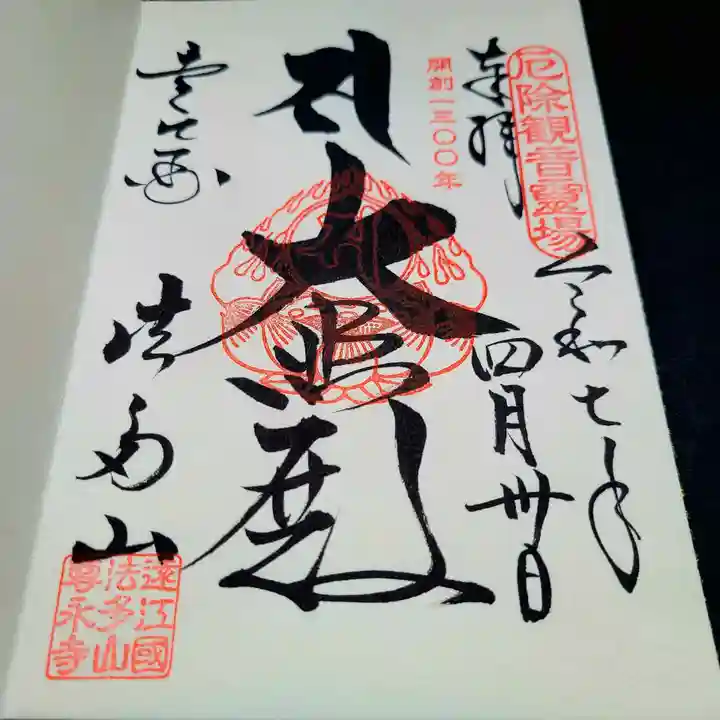 厄除観音霊場
奉拝
令和七年
四月卅日
開創一三〇〇年
大悲殿
法多山
遠江國
法多山
尊永寺